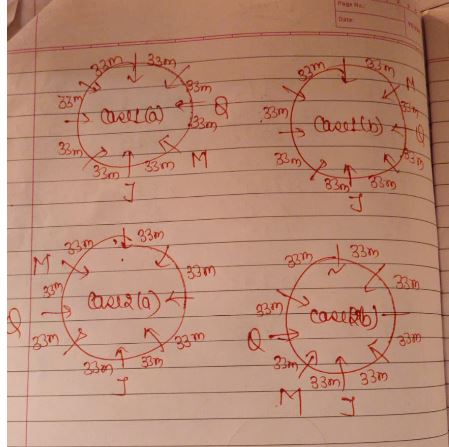 Page No.:
Date:
33m 33m
33m 33m
Case1(a) Q
33m 33m
33m 33m M
J
33m 33m M
33m 33m
Case1(b) Q
33m 33m
33m 33m
J
33m 33m
M 33m 33m
Case2(a)
Q 33m 33m
33m 33m
J
33m 33m
33m 33m
Case2(b)
Q 33m
33m 33m
M J